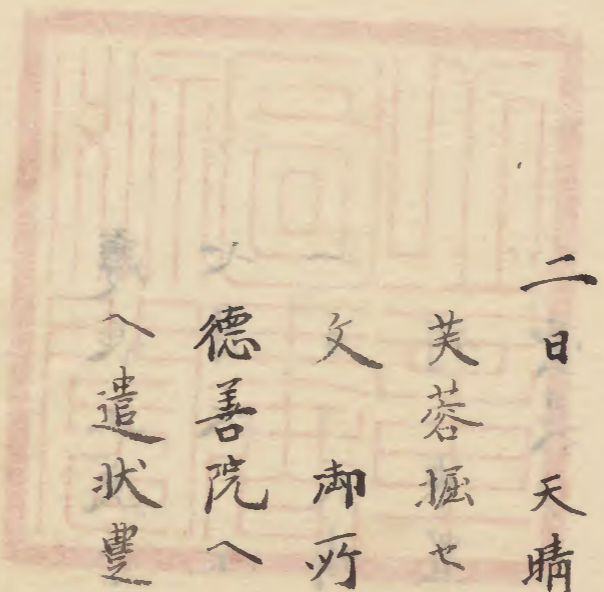 二日 天晴
芙蓉掘也
文 御所
德善院へ
へ遣状豊